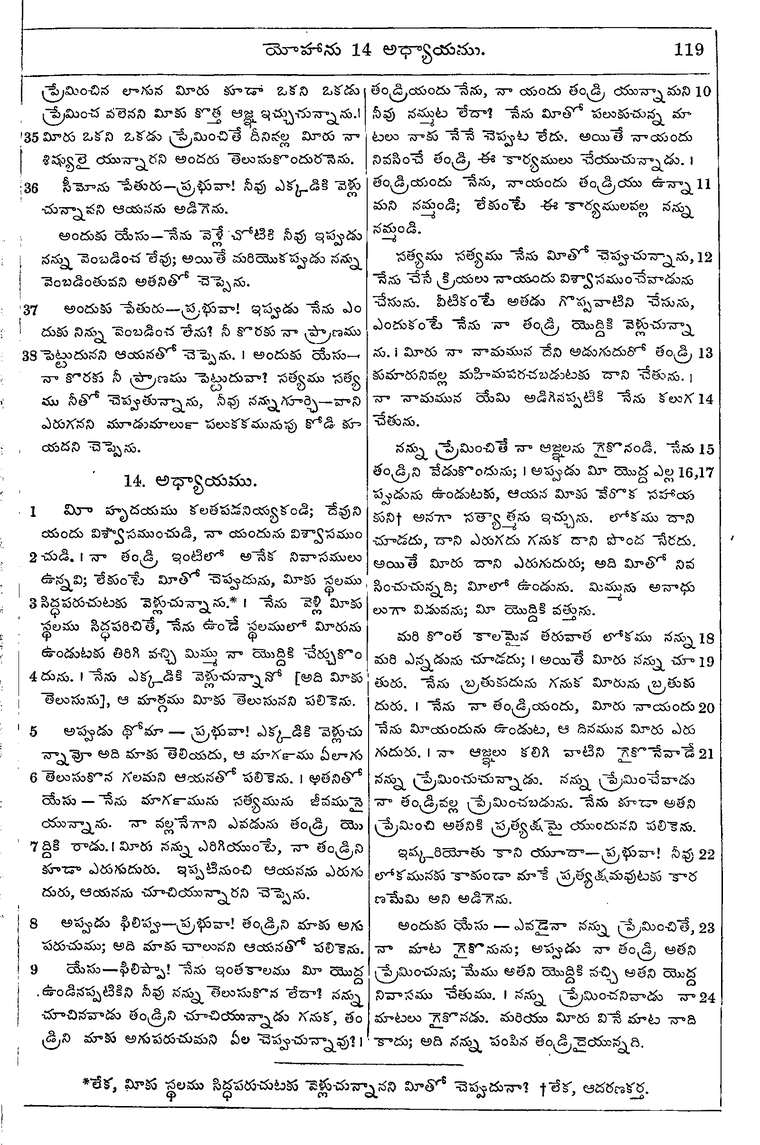 యోహాను 14 అధ్యాయము. 119
ప్రేమించిన లాగున మీరు కూడా ఒకని ఒకడు
ప్రేమించ వలెనని మీకు కొత్త ఆజ్ఞ ఇచ్చుచున్నాను.।
35 మీరు ఒకని ఒకడు ప్రేమించితే దీనివల్ల మీరు నా
శిష్యులై యున్నారని అందరు తెలుసుకొందురనెను.
36 సీమోను పేతురు—ప్రభువా! నీవు ఎక్కడికి వెళ్లు
చున్నావని ఆయనను అడిగెను.
అందుకు యేసు—నేను వెళ్లే చోటికి నీవు ఇప్పుడు
నన్ను వెంబడించ లేవు; అయితే మరియొకప్పుడు నన్ను
వెంబడింతువని అతనితో చెప్పెను.
37 అందుకు పేతురు—ప్రభువా! ఇప్పుడు నేను ఎం
దుకు నిన్ను వెంబడించ లేను? నీ కొరకు నా ప్రాణము
38 పెట్టుదునని ఆయనతో చెప్పెను. । అందుకు యేసు—
నా కొరకు నీ ప్రాణము పెట్టుదువా? సత్యము సత్య
ము నీతో చెప్పుతున్నాను, నీవు నన్నుగూర్చి—వాని
ఎరుగనని మూడుమాలుఁ పలుకకమునుపు కోడి కూ
యదని చెప్పెను.
14. అధ్యాయము.
1 మీ హృదయము కలతపడనియ్యకండి; దేవుని
యందు విశ్వాసముంచుడి, నా యందును విశ్వాసముం
2 చుడి. । నా తండ్రి ఇంటిలో అనేక నివాసములు
ఉన్నవి; లేకుంటే మీతో చెప్పుదును, మీకు స్థలము
3 సిద్ధపరుచుటకు వెళ్లుచున్నాను.* । నేను వెళ్లి మీకు
స్థలము సిద్ధపరిచితే, నేను ఉండే స్థలములో మీరును
ఉండుటకు తిరిగి వచ్చి మిమ్ము నా యొద్దికి చేర్చుకొం
4 దును. । నేను ఎక్కడికి వెళ్లుచున్నానో [అది మీకు
తెలుసును], ఆ మార్గము మీకు తెలుసునని పలికెను.
5 అప్పుడు థోమా — ప్రభువా! ఎక్కడికి వెళ్లుచు
న్నావో అది మాకు తెలియదు, ఆ మాగఁము ఏలాగు
6 తెలుసుకొన గలమని ఆయనతో పలికెను. । అతనితో
యేసు — నేను మాగఁమును సత్యమును జీవమునై
యున్నాను. నా వల్లనేగాని ఎవడును తండ్రి యొ
7 ద్దికి రాడు. । మీరు నన్ను ఎరిగియుంటే, నా తండ్రిని
కూడా ఎరుగుదురు. ఇప్పటినుంచి ఆయనను ఎరుగు
దురు, ఆయనను చూచియున్నారని చెప్పెను.
8 అప్పుడు ఫిలిప్పు—ప్రభువా! తండ్రిని మాకు అగు
పరుచుము; అది మాకు చాలునని ఆయనతో పలికెను.
9 యేసు—ఫిలిప్పా! నేను ఇంతకాలము మీ యొద్ద
ఉండినప్పటికిని నీవు నన్ను తెలుసుకొన లేదా? నన్ను
చూచినవాడు తండ్రిని చూచియున్నాడు గనుక, తం
డ్రిని మాకు అగుపరుచుమని ఏల చెప్పుచున్నావు?।
తండ్రియందు నేను, నా యందు తండ్రి యున్నామని 10
నీవు నమ్ముట లేదా? నేను మీతో పలుకుచున్న మా
టలు నాకు నేనే చెప్పుట లేదు. అయితే నాయందు
నివసించే తండ్రి ఈ కార్యములు చేయుచున్నాడు. ।
తండ్రియందు నేను, నాయందు తండ్రియు ఉన్నా 11
మని నమ్మండి; లేకుంటే ఈ కార్యములవల్ల నన్ను
నమ్మండి.
సత్యము సత్యము నేను మీతో చెప్పుచున్నాను, 12
నేను చేసే క్రియలు నాయందు విశ్వాసముంచేవాడును
చేసును. వీటికంటే అతడు గొప్పవాటిని చేసును,
ఎందుకంటే నేను నా తండ్రి యొద్దికి వెళ్లుచున్నా
ను. । మీరు నా నామమున దేని అడుగుదురో తండ్రి 13
కుమారునివల్ల మహిమపరచబడుటకు దాని చేతును. ।
నా నామమున యేమి అడిగినప్పటికి నేను కలుగ 14
చేతును.
నన్ను ప్రేమించితే నా ఆజ్ఞలను గైకొనండి. నేను 15
తండ్రిని వేడుకొందును; । అప్పుడు మీ యొద్ద ఎల్ల 16,17
ప్పుడును ఉండుటకు, ఆయన మీకు వేరొక సహాయ
కుని† అనగా సత్యాత్మను ఇచ్చును. లోకము దాని
చూడదు, దాని ఎరుగదు గనుక దాని పొంద నేరదు.
అయితే మీరు దాని ఎరుగుదురు; అది మీతో నివ
సించుచున్నది; మీలో ఉండును. మిమ్మును అనాధు
లుగా విడువను; మీ యొద్దికి వత్తును.
మరి కొంత కాలమైన తరువాత లోకము నన్ను 18
మరి ఎన్నడును చూడదు; । అయితే మీరు నన్ను చూ 19
తురు. నేను బ్రతుకుదును గనుక మీరును బ్రతుకు
దురు. । నేను నా తండ్రియందు, మీరు నాయందు 20
నేను మీయందును ఉండుట, ఆ దినమున మీరు ఎరు
గుదురు. । నా ఆజ్ఞలు కలిగి వాటిని గైకొనేవాడే 21
నన్ను ప్రేమించుచున్నాడు. నన్ను ప్రేమించేవాడు
నా తండ్రివల్ల ప్రేమించబడును. నేను కూడా అతని
ప్రేమించి అతనికి ప్రత్యక్షమై యుందునని పలికెను.
ఇష్కరియోతు కాని యూదా—ప్రభువా! నీవు 22
లోకమునకు కాకుండా మాకే ప్రత్యక్షమవుటకు కార
ణమేమి అని అడిగెను.
అందుకు యేసు — ఎవడైనా నన్ను ప్రేమించితే, 23
నా మాట గైకొనును; అప్పుడు నా తండ్రి అతని
ప్రేమించును; మేము అతని యొద్దికి వచ్చి అతని యొద్ద
నివాసము చేతుము. । నన్ను ప్రేమించనివాడు నా 24
మాటలు గైకొనడు. మరియు మీరు వినే మాట నాది
కాదు; అది నన్ను పంపిన తండ్రిదైయున్నది.
*లేక, మీకు స్థలము సిద్ధపరుచుటకు వెళ్లుచున్నానని మీతో చెప్పుదునా? †లేక, ఆదరణకర్త.